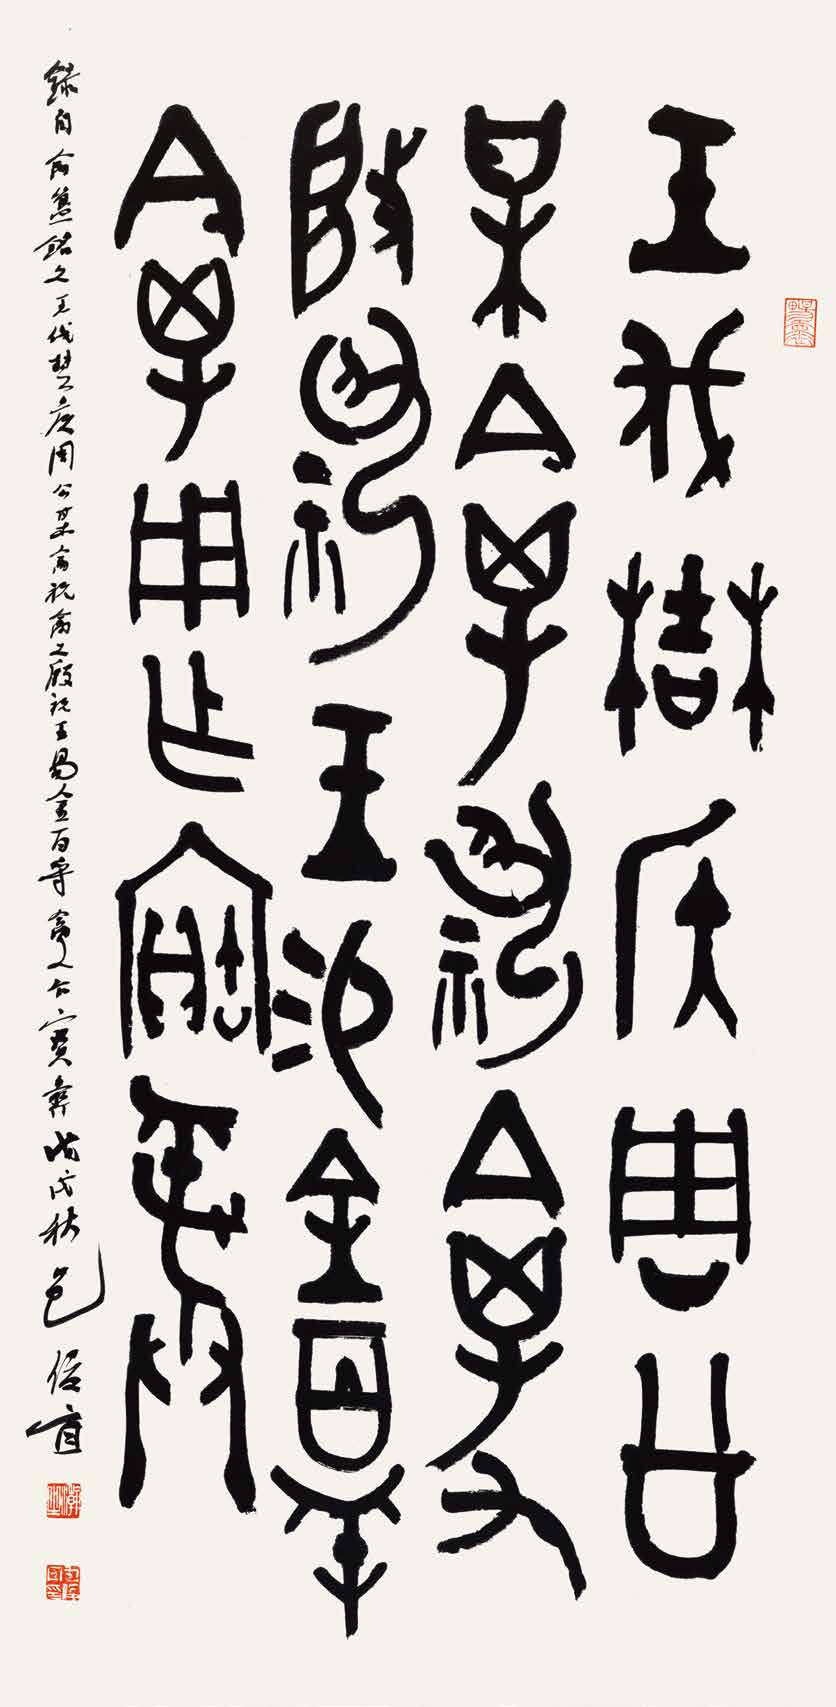 王伐楚侯周公
某禽祝禽又
敐祝王易金百寽
禽用乍寶彝
錄自禽簋銘文王伐楚侯周公某禽祝禽又敐祝王易金百寽禽乍寶彝戊戌秋